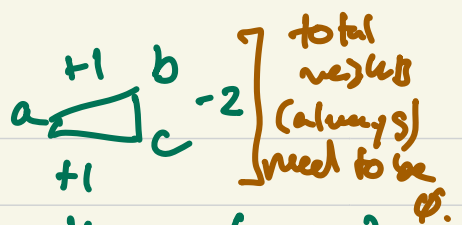 +1 b
a
-2
c
+1
total
weights
(always)
need to be
φ.